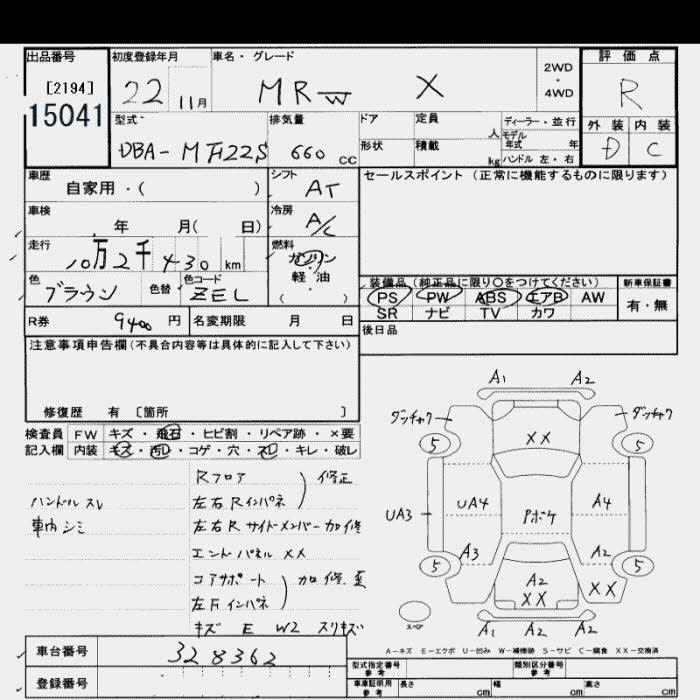 出品番号 初度登録年月 車名・グレード 評価点
[2194] 22 11月 MRW X 2WD・4WD R
15041
型式 排気量 ドア 定員 人 ディーラー・並行 外装 内装
モデル年式 年
DBA-MF22S 660 CC 形状 積載 kg ハンドル 左・右 D C
車歴 シフト セールスポイント (正常に機能するものに限ります)
自家用・( ) AT
車検 冷房
年 月( 日) A/C
走行 燃料
10万2千430 km ガソリン
軽・油
色 色替 色コード ( ) 装備品 (純正品に限り○をつけてください) 新車保証書
ブラウン ZEL PS PW ABS エアB AW 有・無
SR ナビ TV カワ
R券 9400 円 名変期限 月 日 後日品
注意事項申告欄(不具合内容等は具体的に記入して下さい)
修復歴 有 〔箇所 〕
検査員 FW キズ・飛石・ヒビ割・リペア跡・×要
記入欄 内装 キズ・汚レ・コゲ・穴・スレ・キレ・破レ
A1 A2
ダッチャク ダッチャク
5 XX 5
UA3 UA4 Pボケ A4
A3 A2
5 A2 XX XX 5
スペア A1 A2 A2
ハンドルスレ
車内シミ
Rフロア
左右Rインパネ 修正
左右R サイドメンバー 加修
エンドパネル XX
コアサポート
左Fインパネ 加修.歪
キズ E W2 スリキズ
A-キズ E-エクボ U-凹み W-補修跡 S-サビ C-腐食 XX-交換済
車台番号 328362 型式指定番号 参考 類別区分番号 参考
登録番号 車庫証明用 参考 長さ cm 幅 cm 高さ cm